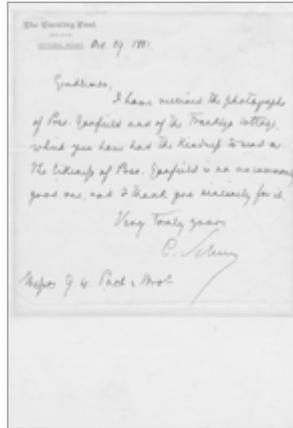 The Evening Post.
Oct. 29. 1881.
Gentlemen,
I have received the photographs
of Pres. Garfield and of the Francklyn cottage
which you have had the kindness to send me.
The likeness of Pres. Garfield is an uncommonly
good one, and I thank you sincerely for it.
Very truly yours
C. Schurz
Messrs G. W. Pach & Bros.